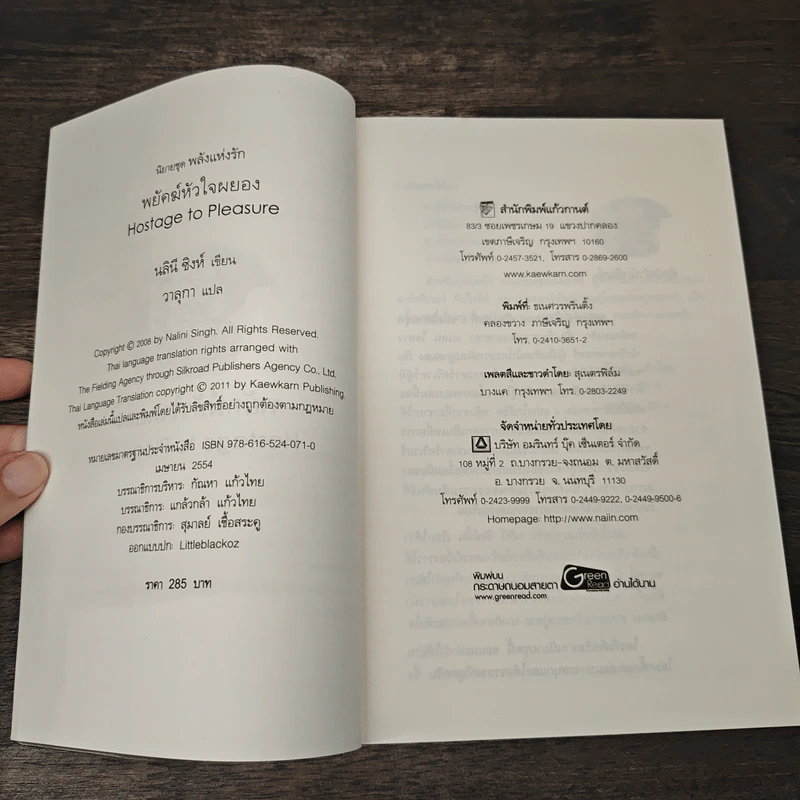 นิยายชุด พลังแห่งรัก
พยัคฆ์หัวใจผยอง
Hostage to Pleasure
นลินี ซิงห์ เขียน
วาลุกา แปล
Copyright © 2008 by Nalini Singh. All Rights Reserved.
Thai language translation rights arranged with
The Fielding Agency through Silkroad Publishers Agency Co., Ltd.
Thai Language Translation copyright © 2011 by Kaewkarn Publishing.
หนังสือเล่มนี้แปลและพิมพ์โดยได้รับลิขสิทธิ์อย่างถูกต้องตามกฎหมาย
หมายเลขมาตรฐานประจำหนังสือ ISBN 978-616-524-071-0
เมษายน 2554
บรรณาธิการบริหาร: กัณหา แก้วไทย
บรรณาธิการ: แกล้วกล้า แก้วไทย
กองบรรณาธิการ: สุมาลย์ เชื้อสระคู
ออกแบบปก: Littleblackoz
ราคา 285 บาท
สำนักพิมพ์แก้วกานต์
83/3 ซอยเพชรเกษม 19 แขวงปากคลอง
เขตภาษีเจริญ กรุงเทพฯ 10160
โทรศัพท์ 0-2457-3521, โทรสาร 0-2869-2600
www.kaewkarn.com
พิมพ์ที่: ธเนศวรพรินติ้ง
คลองขวาง ภาษีเจริญ กรุงเทพฯ
โทร. 0-2410-3651-2
เพลตสีและขาวดำโดย: สุเนตรฟิล์ม
บางแค กรุงเทพฯ โทร. 0-2803-2249
จัดจำหน่ายทั่วประเทศโดย
บริษัท อมรินทร์ บุ๊ค เซ็นเตอร์ จำกัด
108 หมู่ที่ 2 ถ.บางกรวย-จงถนอม ต. มหาสวัสดิ์
อ. บางกรวย จ. นนทบุรี 11130
โทรศัพท์ 0-2423-9999 โทรสาร 0-2449-9222, 0-2449-9500-6
Homepage: http://www.naiin.com
พิมพ์บน
กระดาษถนอมสายตา Green Read อ่านได้นาน
www.greenread.com